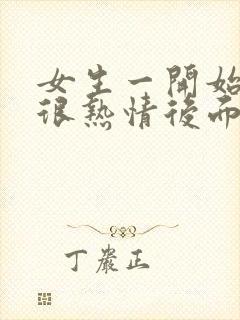 女生一開始
很熱情後而
丁嚴正